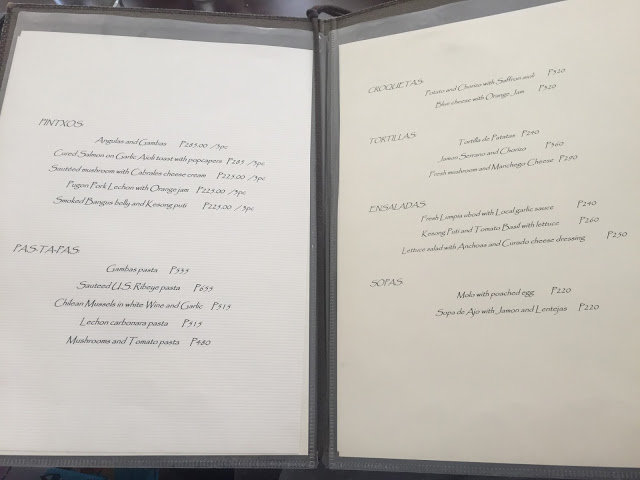 PINTXOS:
Angulas and Gambas P285.00 /3pc
Cured Salmon on Garlic Aioli toast with popcapers P285 /3pc
Sautéed mushroom with Cabrales cheese cream P225.00 /3pc
Pugon Pork Lechon with Orange jam P225.00 /3pc
Smoked Bangus belly and Kesong puti P225.00 /3pc
PAS-TA-PAS:
Gambas pasta P535
Sauteed U.S. Ribeye pasta P655
Chilean Mussels in white Wine and Garlic P515
Lechon carbonara pasta P515
Mushrooms and Tomato pasta P480
CROQUETAS:
Potato and Chorizo with Saffron aioli P320
Blue cheese with Orange Jam P320
TORTILLAS:
Tortilla de Patatas P240
Jamon Serrano and Chorizo P360
Fresh mushroom and Manchego Cheese P290
ENSALADAS:
Fresh Lumpia ubod with Local garlic sauce P240
Kesong Puti and Tomato Basil with lettuce P260
Lettuce salad with Anchoas and Curado cheese dressing P250
SOPAS:
Molo with poached egg P220
Sopa de Ajo with Jamon and Lentejas P220